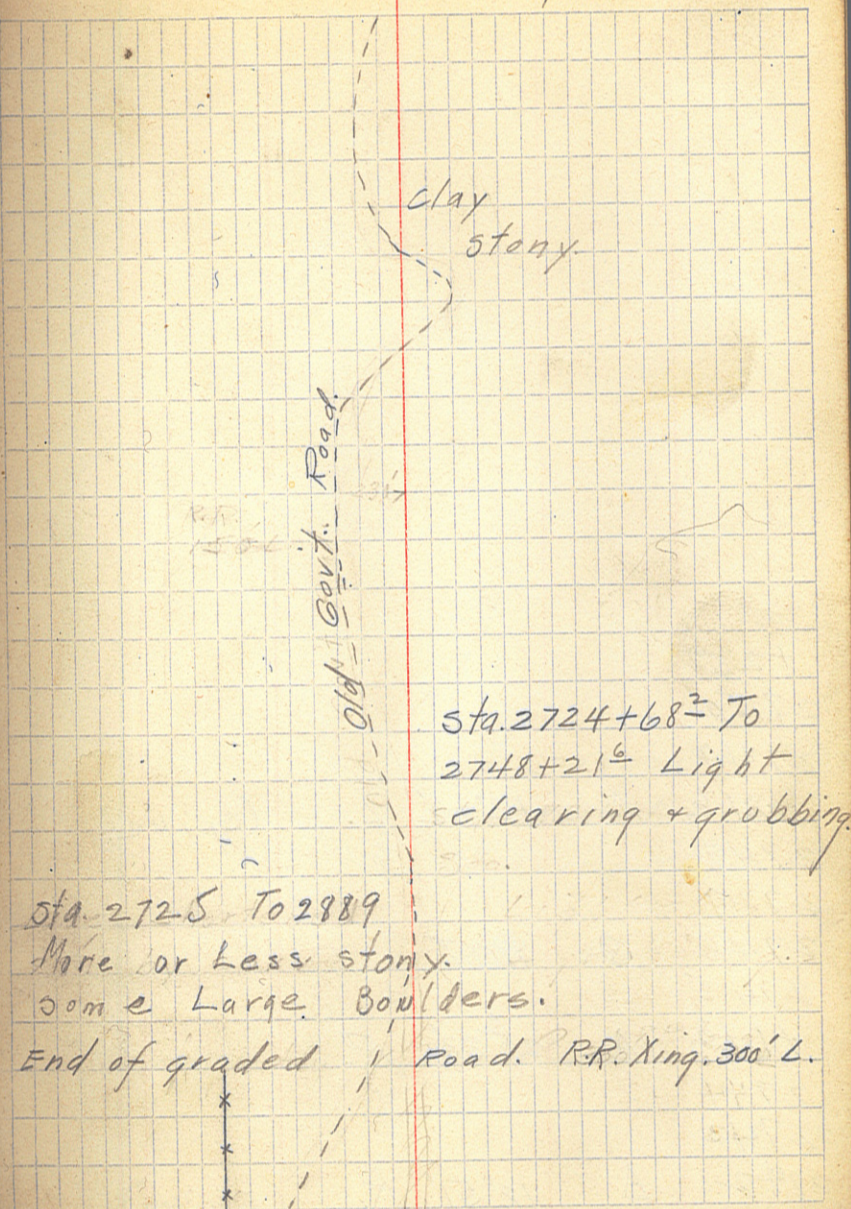 clay
stony.
Old Gov't. Road.
231'
R.R.
150 L
Sta. 2724+68² To
2748+21⁶ Light
clearing & grubbing.
Sta. 2725 To 2889
More or Less stony.
some Large Boulders.
End of graded Road. R.R. Xing. 300' L.